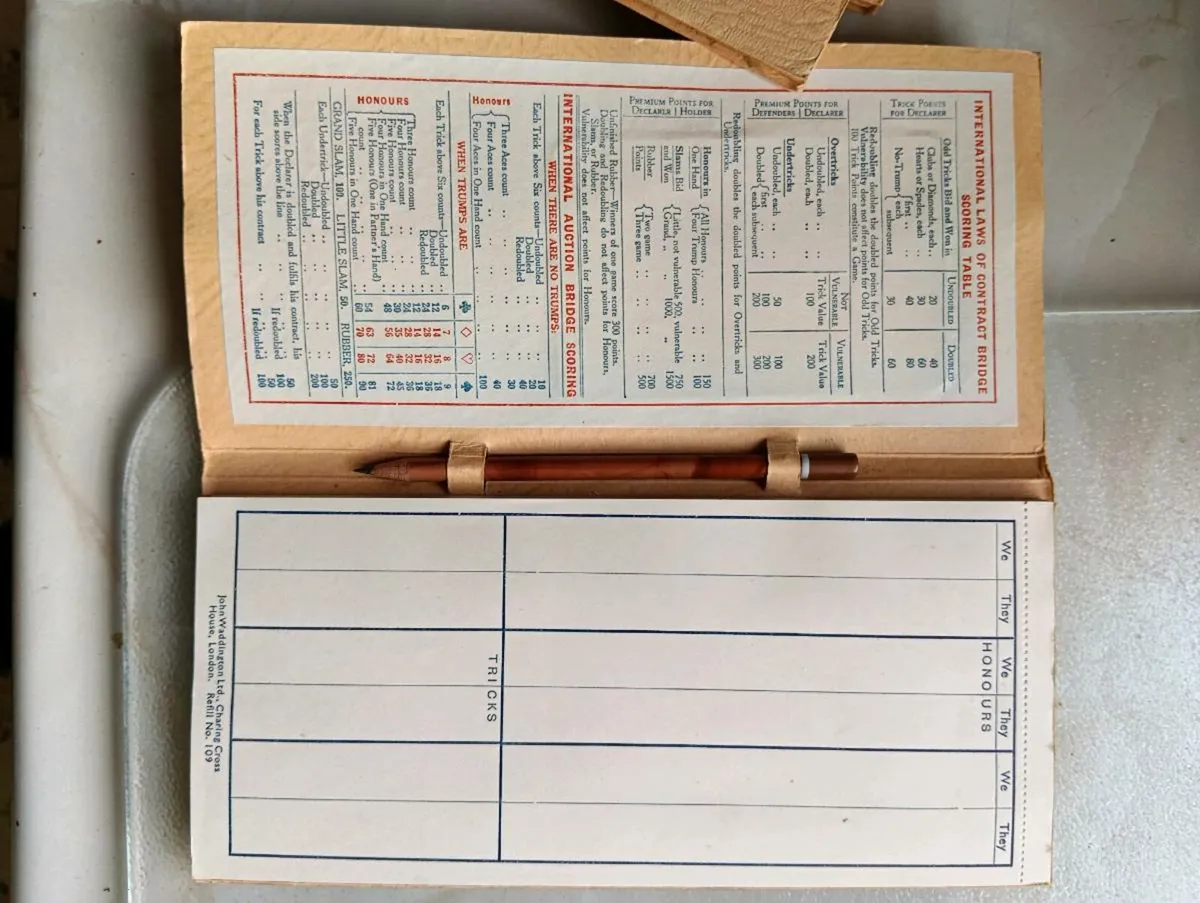 INTERNATIONAL LAWS OF CONTRACT BRIDGE
SCORING TABLE
TRICK POINTS
FOR DECLARER
Odd Tricks Bid and Won in
UNDOUBLED
DOUBLED
Clubs or Diamonds, each .. 20 40
Hearts or Spades, each .. 30 60
No-Trump { first .. 40 80
each { subsequent 30 60
Redoubling doubles the doubled points for Odd Tricks.
Vulnerability does not affect points for Odd Tricks.
100 Trick Points constitute a Game.
PREMIUM POINTS FOR
DEFENDERS | DECLARER
NOT
VULNERABLE
VULNERABLE
Overtricks
Undoubled, each .. Trick Value Trick Value
Doubled, each .. 100 200
Undertricks
Undoubled, each .. 50 100
Doubled { first .. 100 200
{ each subsequent 200 300
Redoubling doubles the doubled points for Overtricks and
Undertricks.
PREMIUM POINTS FOR
DECLARER | HOLDER
Honours in { All Honours .. .. 150
One Hand { Four Trump Honours .. 100
Slams Bid { Little, not vulnerable 500, vulnerable 750
and Won { Grand, „ „ 1000, „ 1500
Rubber { Two game .. .. 700
Points { Three game .. .. 500
Unfinished Rubber—Winners of one game score 300 points.
Doubling and Redoubling do not affect points for Honours,
Slams, or Rubber.
Vulnerability does not affect points for Honours.
INTERNATIONAL AUCTION BRIDGE SCORING
WHEN THERE ARE NO TRUMPS:
Each Trick above Six counts—Undoubled .. .. 10
Doubled .. .. 20
Redoubled .. .. 40
Honours
{ Three Aces count .. .. 30
{ Four Aces count .. .. 40
{ Four Aces in One Hand count .. .. 100
WHEN TRUMPS ARE ♣ ♢ ♡ ♠
Each Trick above Six counts—Undoubled 6 7 8 9
Doubled 12 14 16 18
Redoubled 24 28 32 36
HONOURS
{ Three Honours count .. 12 14 16 18
Four Honours count .. 24 28 32 36
Five Honours count .. 30 35 40 45
Four Honours in One Hand count .. 48 56 64 72
Five Honours (One in Partner's Hand) count .. 54 63 72 81
Five Honours in One Hand count 60 70 80 90
GRAND SLAM, 100. LITTLE SLAM, 50. RUBBER, 250.
Each Undertrick—Undoubled .. .. 50
Doubled .. .. 100
Redoubled .. .. 200
When the Declarer is doubled and fulfils his contract, his
side scores above the line .. .. 50
If redoubled 100
For each Trick above his contract .. .. 50
If redoubled 100
We They We They We They
HONOURS
TRICKS
John Waddington Ltd., Charing Cross
House, London. Refill No. 109